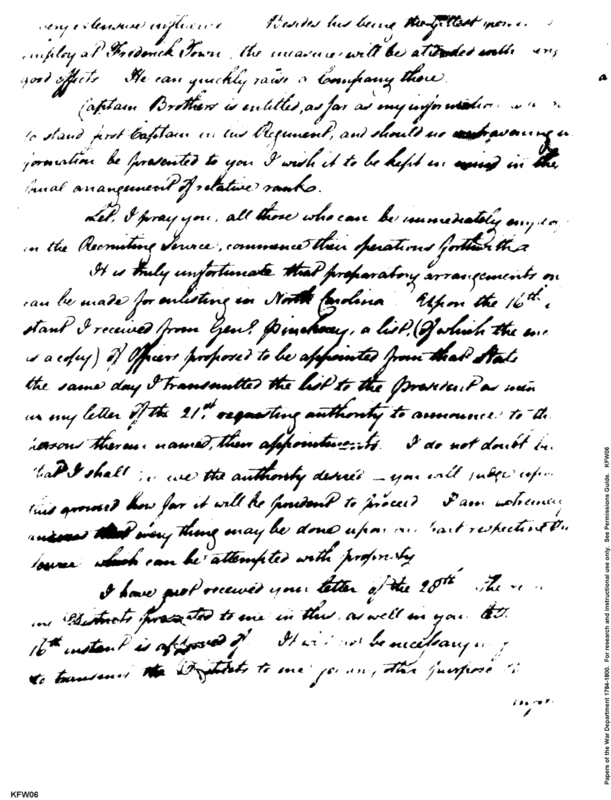 very extensive influence Besides his being the fittest
employ at Frederick Town, the measure will be attended with very
good effects He can quickly raise a Company there.
Captain Brothers is entitled, as far as my information
to stand first Captain in his Regiment, and should no
formation be presented to you I wish it to be kept in mind in the
final arrangement of relative rank.
Let, I pray you, all those who can be immediately
in the Recruiting Service, commence their operations forthwith
It is truly unfortunate that preparatory arrangements
can be made for enlisting in North Carolina Upon the 16th
stant I received from Genl. Pinckney, a list, (of which the
is a copy) of Officers proposed to be appointed from that State
the same day I transmitted the list to the President as
in my letter of the 21st requesting authority to announce to the
persons therein named, their appointments. I do not doubt
that I shall the authority desired — you will judge upon
this ground how far it will be prudent to proceed I am
that every thing may be done upon our part respecting the
which can be attempted with propriety
I have just received your letter of the 28th The
Districts presented to me in this, as well in your
16th instant is approved of It will not be necessary
to transmit the Districts to me for any other purpose
KFW06
Papers of the War Department 1784-1800. For research and instructional use only. See Permissions Guide. KFW06